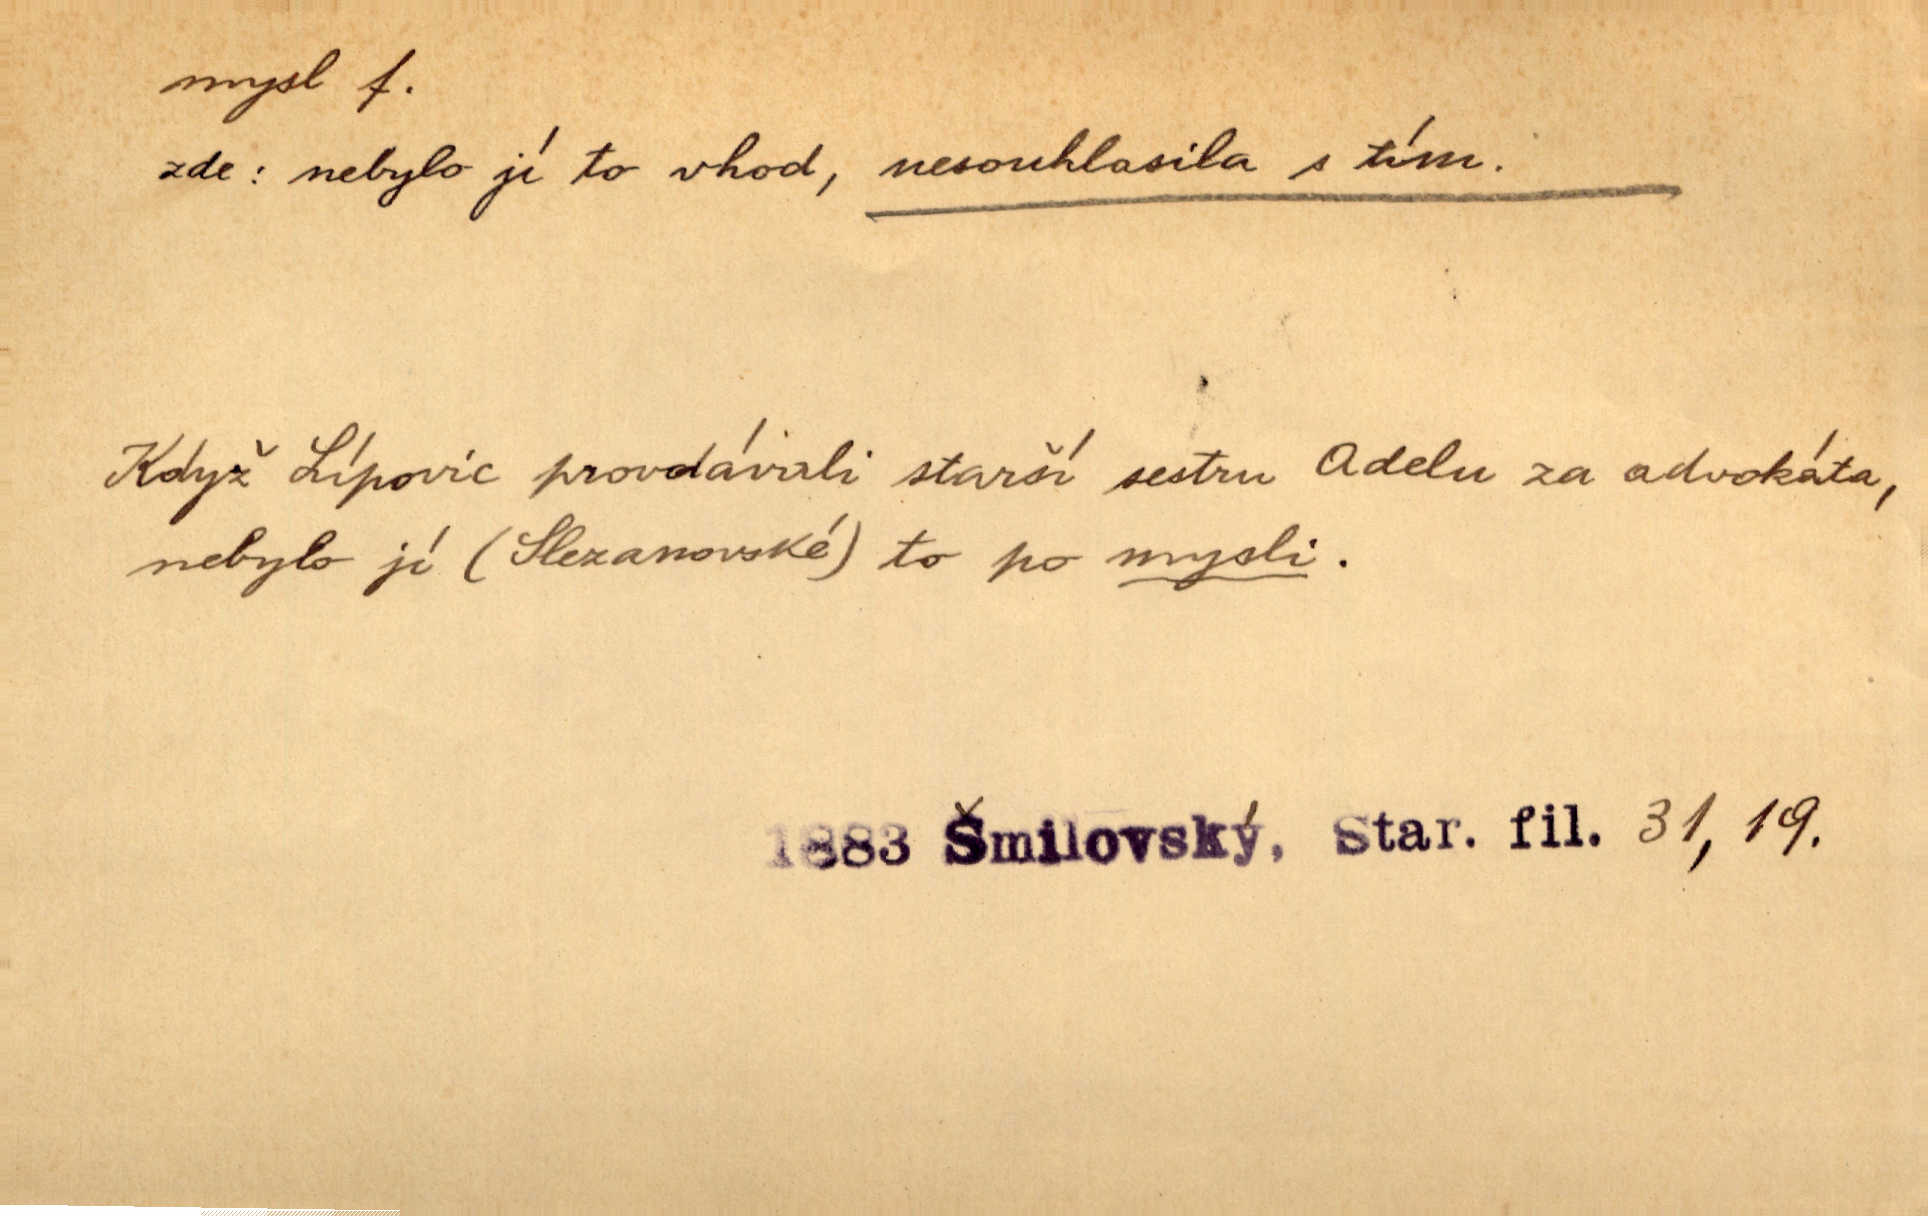 mysl f.
zde: nebylo jí to vhod, nesouhlasila s tím.
Když Lípovic provdávali starší sestru Adelu za advokáta,
nebylo jí (Slezanovské) to po mysli.
1883 Šmilovský, Star. fil. 31, 19.